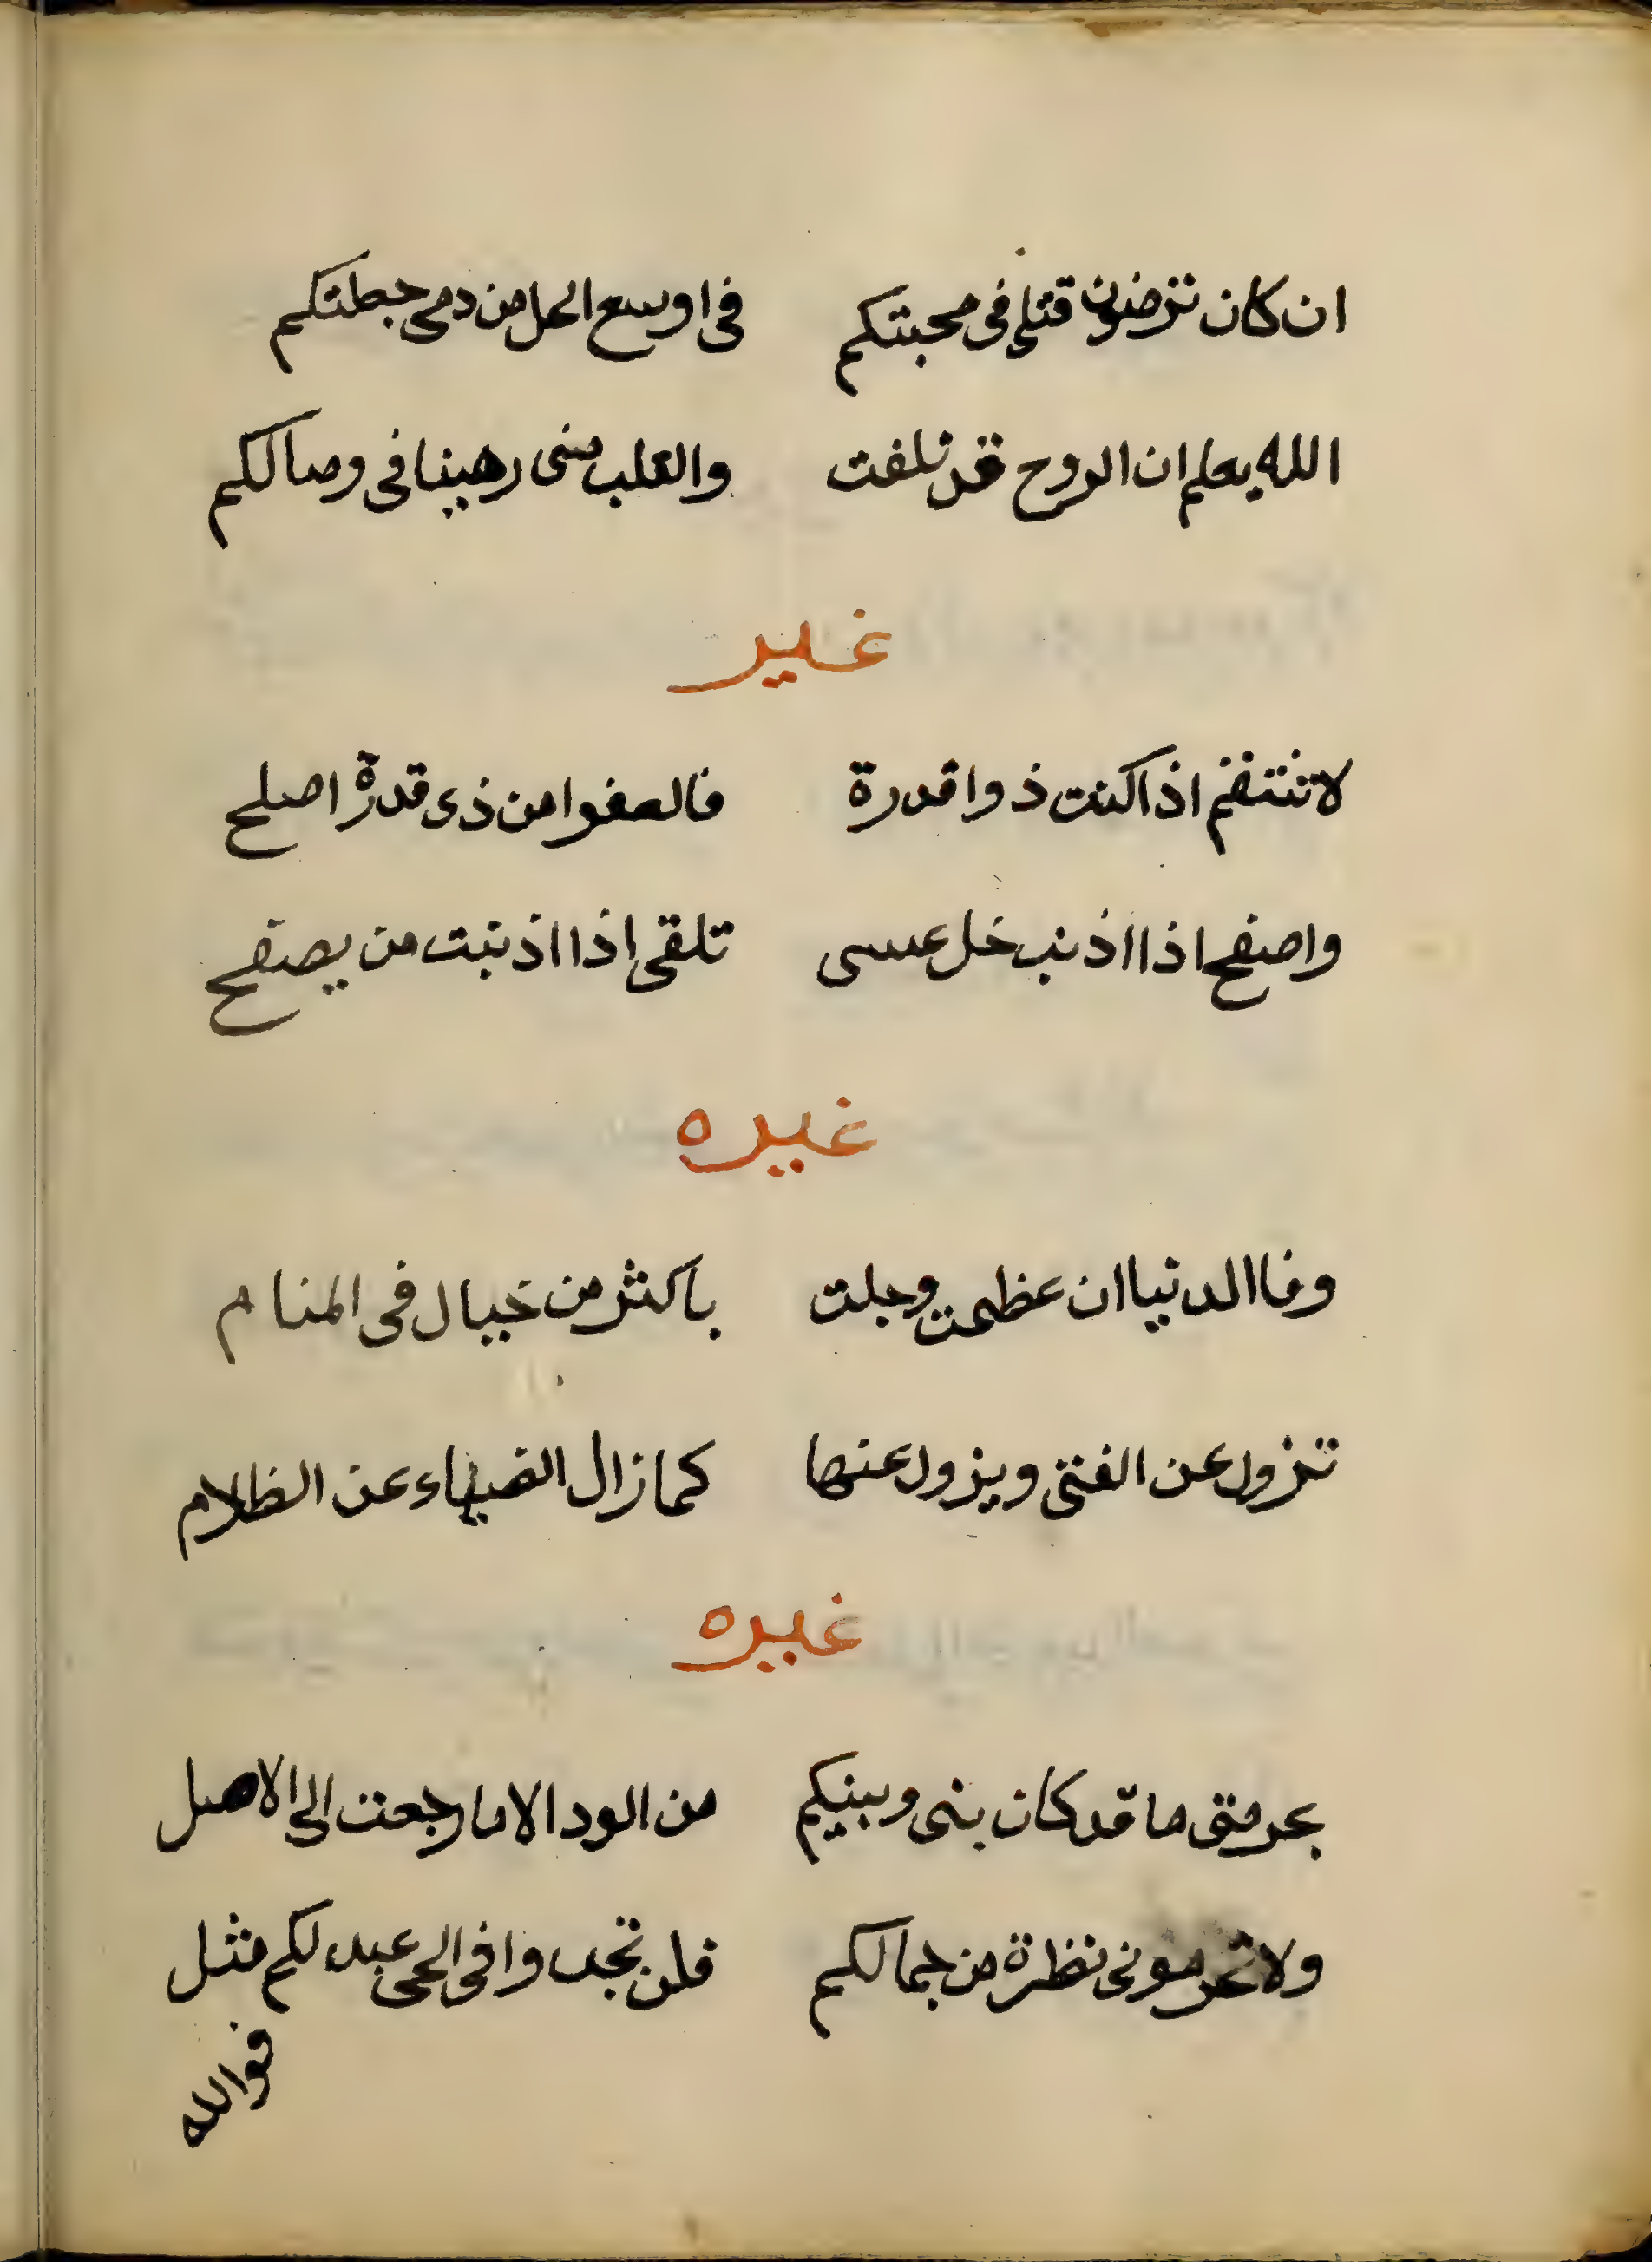 ان كان ترضون قتلي في محبتكم في اوسع الحل من دمي جعلتكم
الله يعلم ان الروح قد تلفت والقلب منى رهينا فى وصالكم
غير
لا تنتقم اذا كنت ذوا قدرة فالعفوا من ذى قدرة اصلح
واصفح اذا اذنب خل عسى تلقى اذا اذنبت من يصفح
غيره
وما الدنيا ان عظمت وجلت باكثر من خيال فى المنام
تزول عن الفتى ويزول عنها كما زال الضياء عن الظلام
غيره
بحرمتى ما قد كان بنى وبينكم من الود الا ما رجعت الى الاصل
ولا تحرمونى نظرة من جمالكم فلن تجدوا فى الحى عبد لكم مثل
فوالله